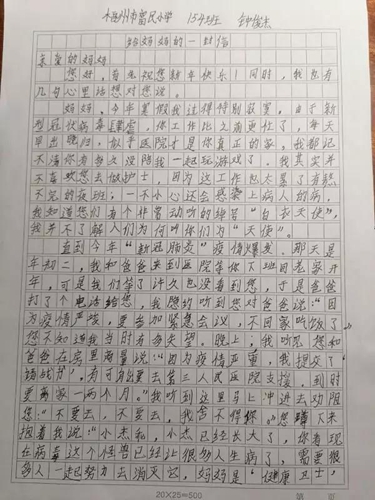 梅州市富民小学 154班 钟俊杰
给妈妈的一封信
亲爱的妈妈:
您好,首先祝您新年快乐!同时,我也有
几句心里话想对您说。
妈妈,今年寒假我过得特别寂寞,由于新
型冠状病毒肆虐,你工作比之前更忙了,每天
早出晚归,似乎医院才是你真正的家。我都记
不清你有多久没陪我一起玩游戏了。我其实并
不喜欢您去做护士,因为这工作也太累了有熬
不完的夜班;一不小心还会感染上病人的病,
我知道您们有个非常动听的绰号“白衣天使”,
我并不了解人们为何叫你们为“天使”。
直到今年“新冠肺炎”疫情爆发。那天是
年初二,我和爸爸来到医院等你下班回老家开
年,可是我们等了许久也没看到您,于是爸爸
打了个电话给您,我隐约听到您对爸爸说:“因
为疫情严峻,要参加紧急会议,不回家吃饭了。”
您不知道我当时有多失望。晚上,我听见您和
爸爸在房里商量说:“因为疫情严重,我提交了
“请战书”,有可能要去第三人民医院支援,到时
要离家一两个月。”我听到这里马上冲进去劝阻
您:“不要去,不要去,我舍不得你。”您蹲下来
抱着我说:“小杰和,小杰已经长大了,你看现
在病毒这个怪兽已经让很多人生病了,需要很
多人一起努力去消灭它,妈妈是“健康卫士”,
20X25=500
第 页